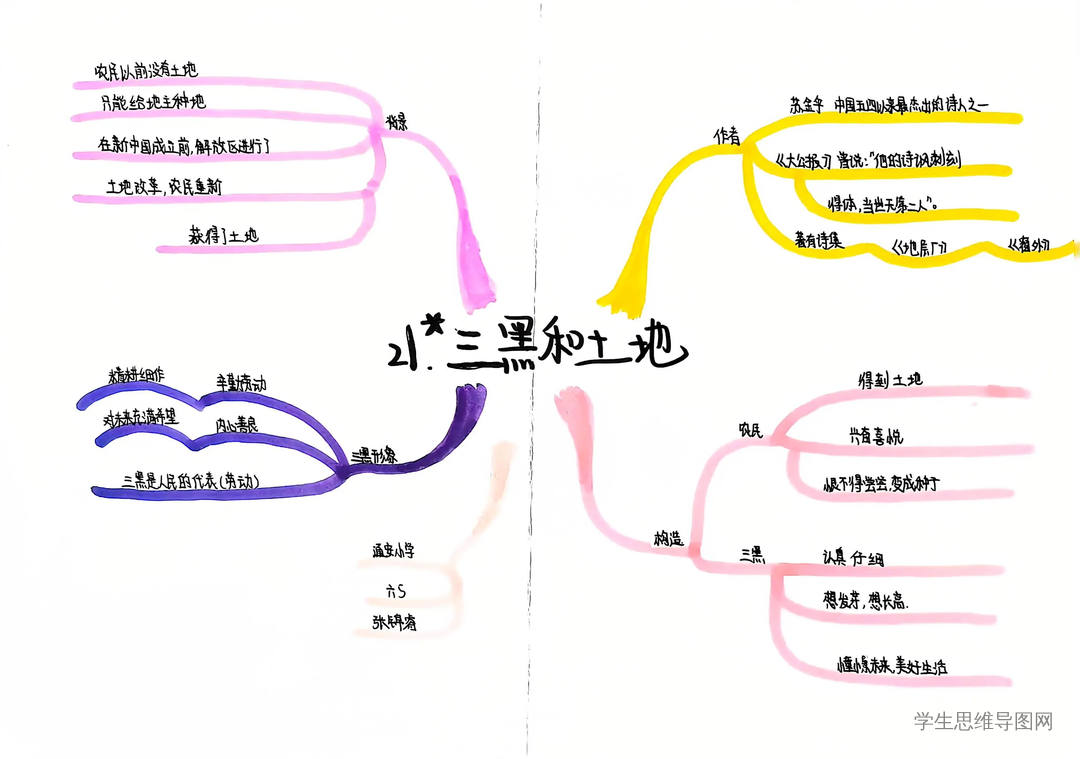 21.*三黑和土地
作者
苏金伞 中国五四以来最杰出的诗人之一
《大公报》曾说：“他的诗讽刺刻
得体，当世无第二人”。
著有诗集
《地层下》
《窗外》
构造
农民
得到土地
六有喜悦
恨不得尝尝，变成种子
三黑
认真仔细
想发芽，想长高.
憧憬未来，美好生活
背景
农民以前没有土地
只能给地主种地
在新中国成立前，解放区进行了
土地改革，农民重新
获得了土地
三黑形象
辛勤劳动
精耕细作
内心善良
对未来充满希望
三黑是人民的代表(劳动)
涵安小学
六5
学生思维导图网